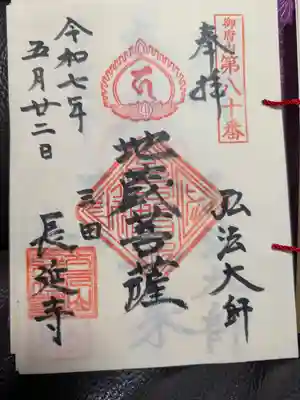 御府内第八十番
奉拝
弘法大師
地蔵菩薩
三田
長延寺
令和七年
五月廿二日